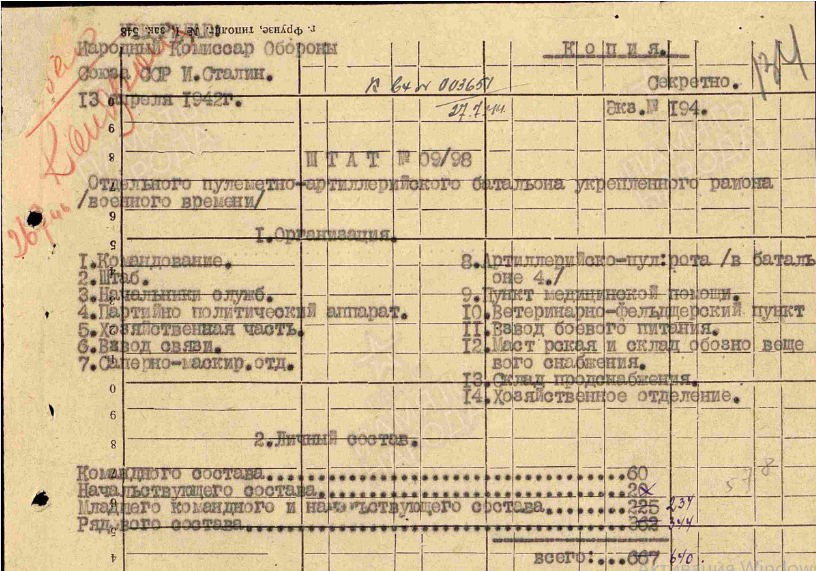 г. Фрунзе, типолит. № 1, зак. 548
Народный Комиссар Обороны
К о п и я.
Союза ССР И.Сталин.
Секретно.
13 апреля 1942г.
Экз.№ 194.
к вх № 003651
27.7
134
Ш Т А Т № 09/98
Отдельного пулеметно-артиллерийского батальона укрепленного района
/военного времени/
1.Организация.
1.Командование.
2.Штаб.
3.Начальники служб.
4.Партийно политический аппарат.
5.Хозяйственная часть.
6.Взвод связи.
7.Саперно-маскир.отд.
8.Артиллерийско-пул:рота /в баталь
оне 4./
9.Пункт медицинской помощи.
10.Ветеринарно-фельдшерский пункт
11.Взвод боевого питания.
12.Маст рская и склад обозно веще
вого снабжения.
13.Склад продснабжения.
14.Хозяйственное отделение.
2.Личный состав.
Командного состава..............................60
Начальствующего состава.........................
Младшего командного и начальствующего состава.......225 234
Рядового состава................................362 344
всего:...667 640.
578
Активация Windows